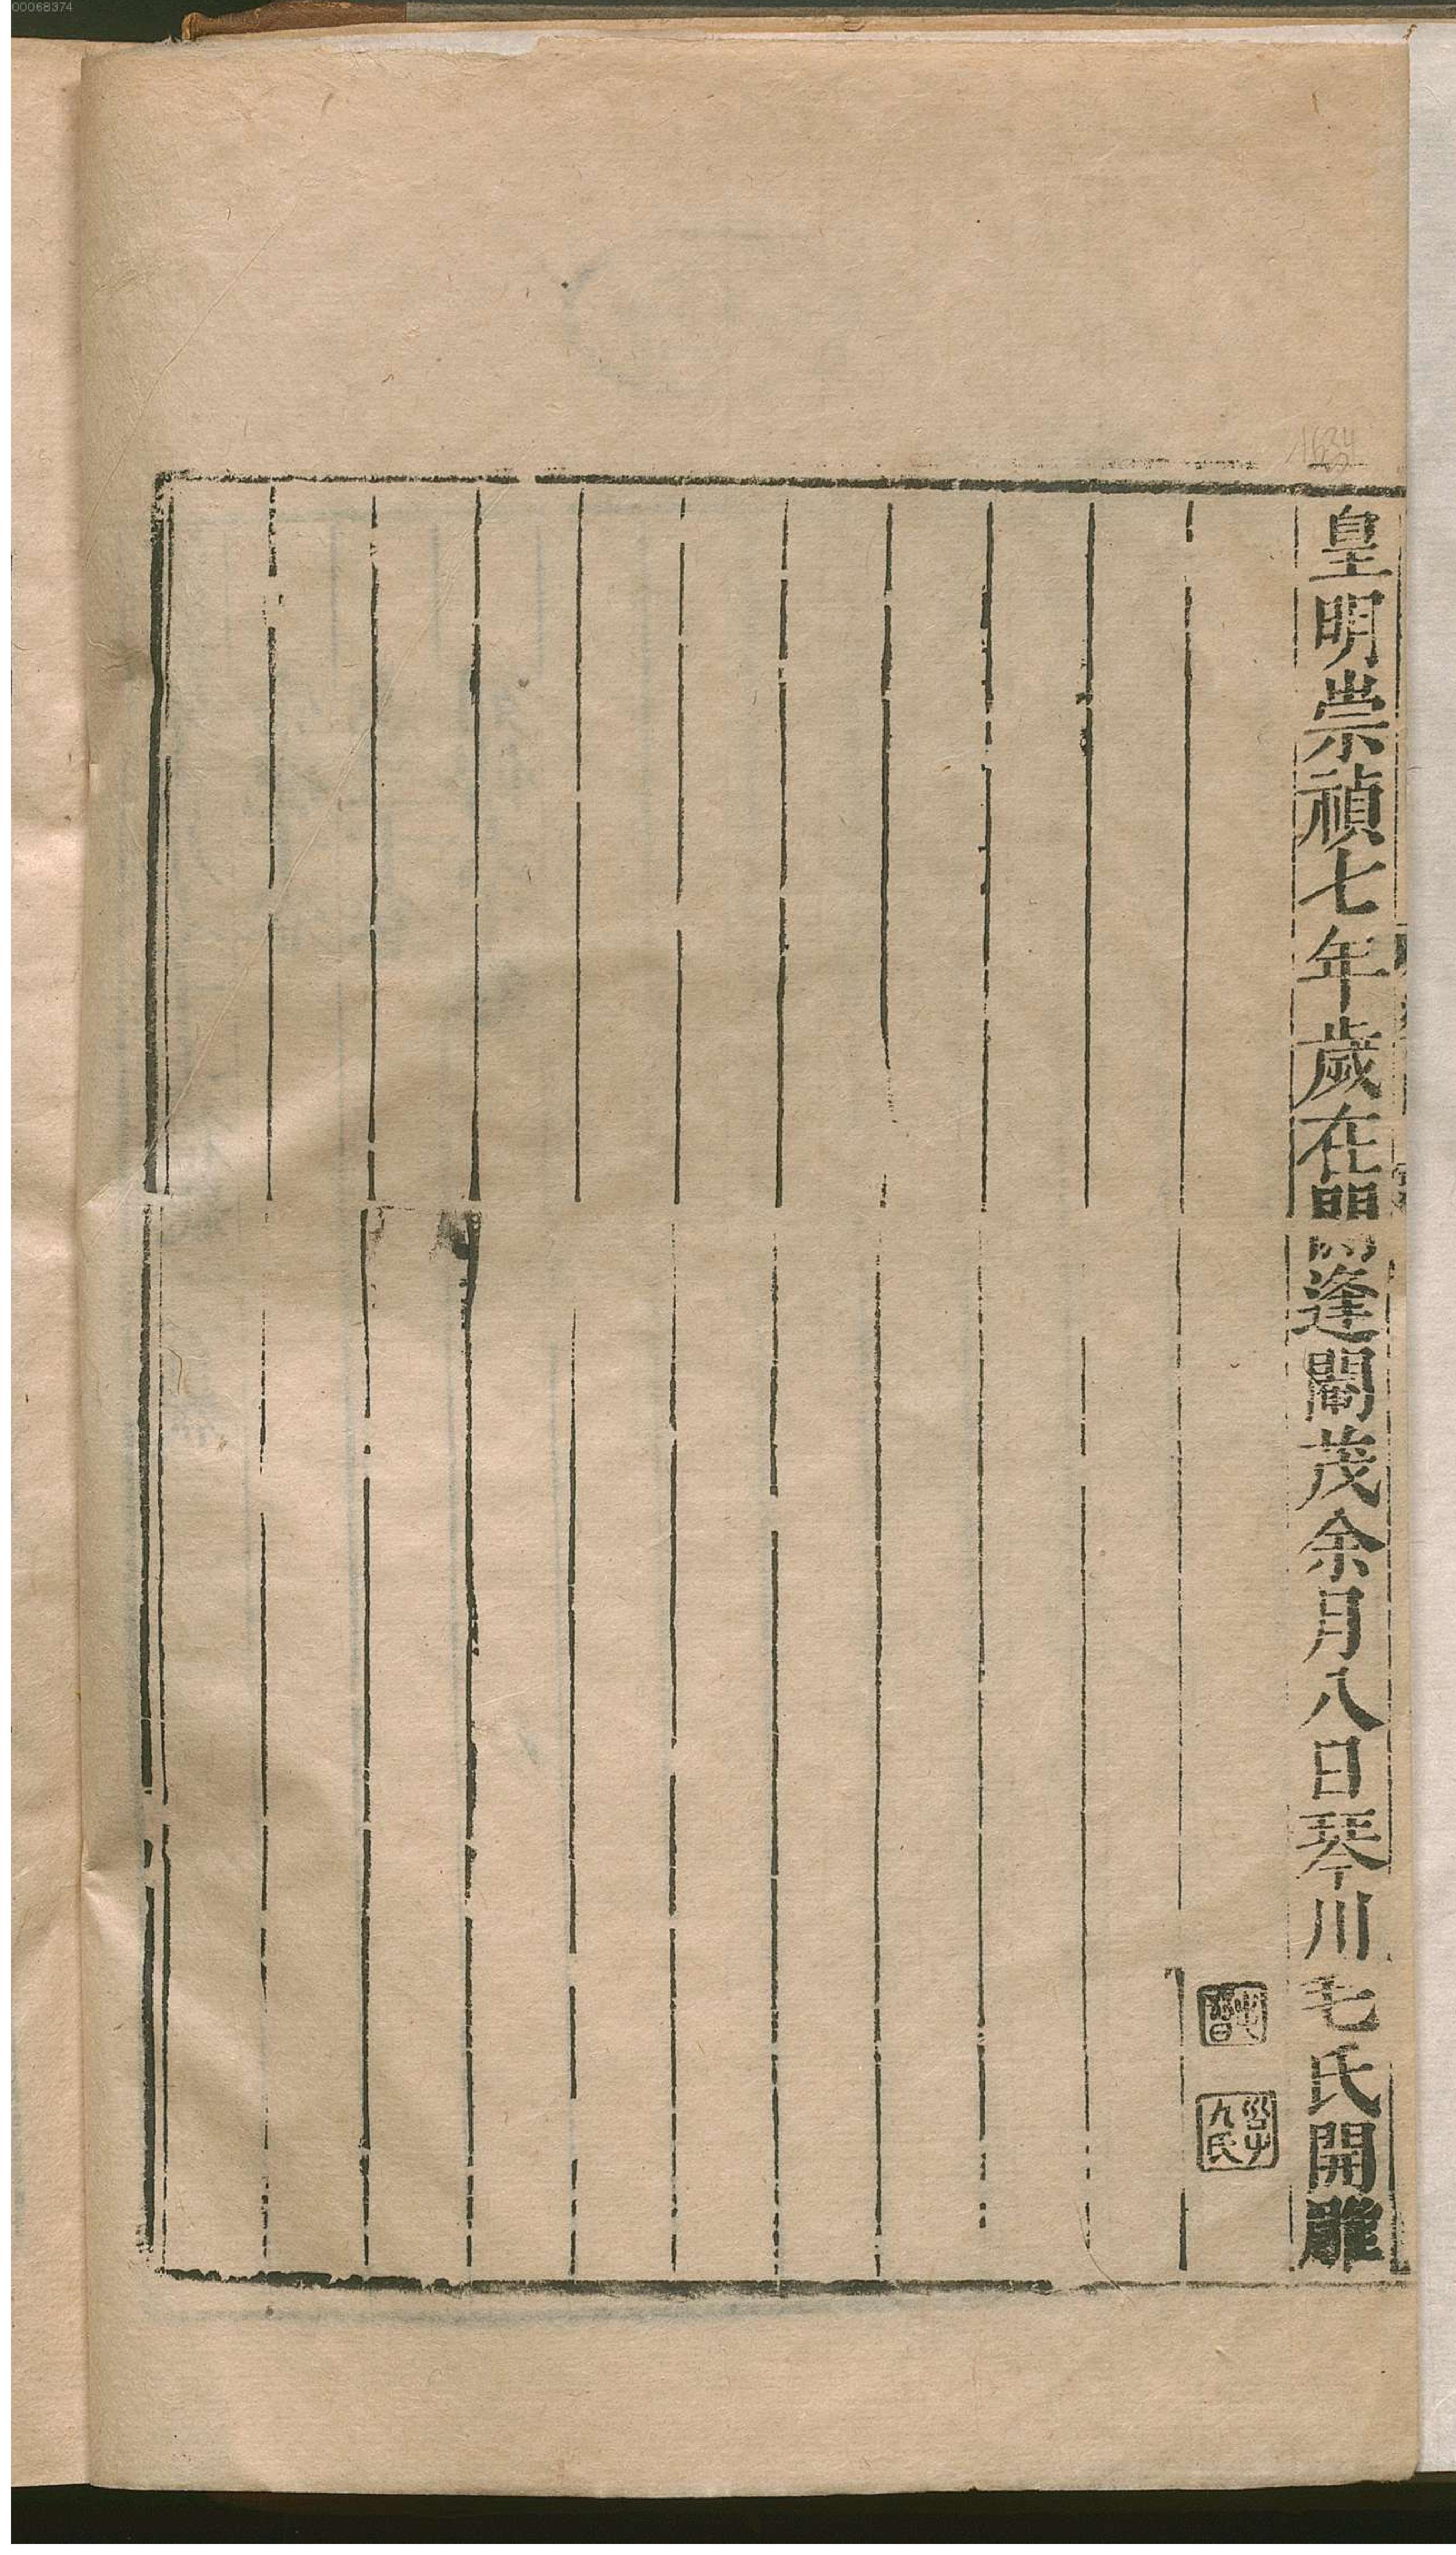 皇明崇禎七年歲在閼逢閹茂余月八日琴川毛氏開雕
1634
00068374